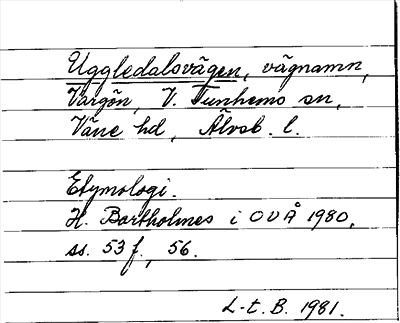 Uggledalsvägen, vägnamn,
Vargön, V. Tunhems sn,
Väne hd, Älvsb. l.
Etymologi.
H. Bartholmes i OUÅ 1980,
ss. 53 f., 56.
L-t. B. 1981.